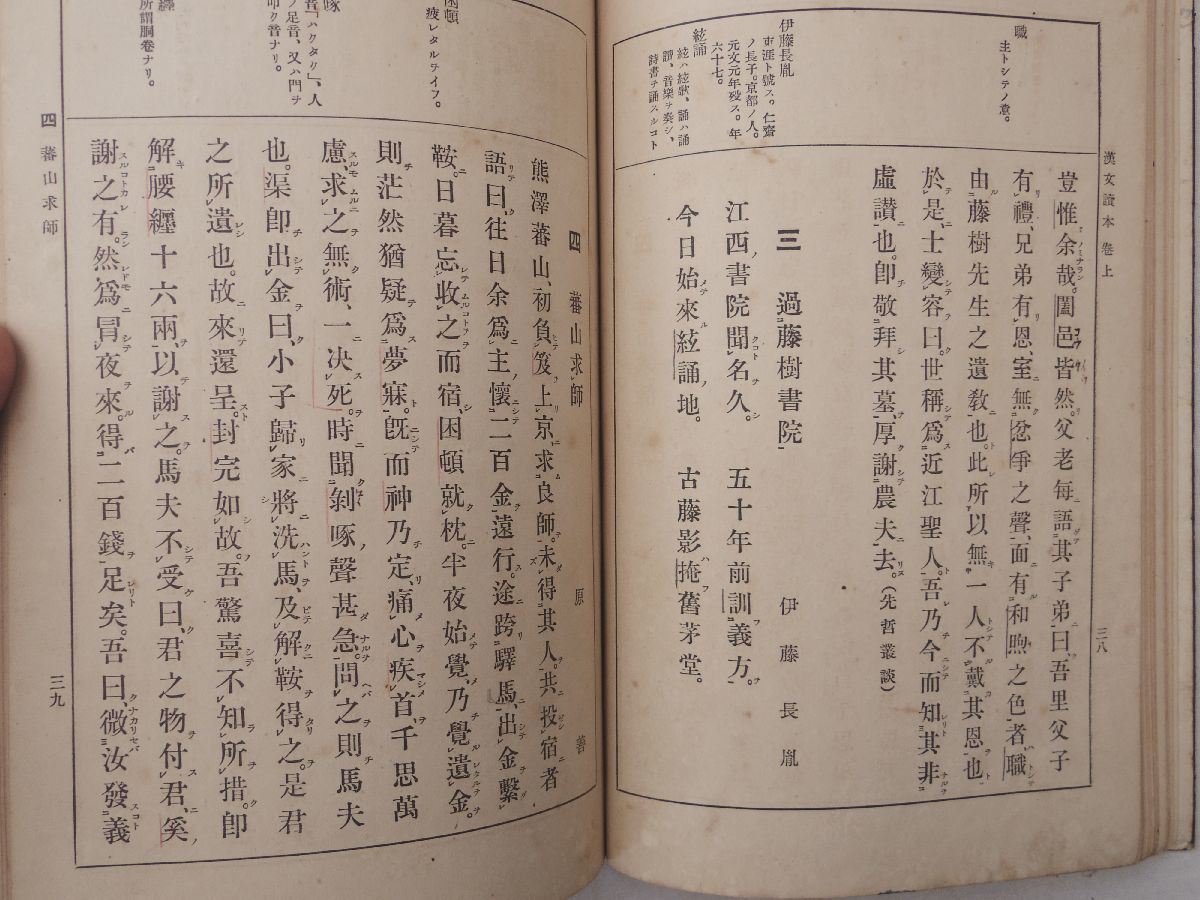 漢文讀本 卷上
三八
職
主トシテノ意。
伊藤長胤
東涯ト號ス。仁齋
ノ長子。京都ノ人。
元文元年歿ス。年
六十七。
絃誦
絃ハ絃歌、誦ハ誦
讀、音樂ヲ奏シ、
詩書ヲ誦スルコト
豈惟余哉。闔邑皆然。父老每語其子弟曰、吾里父子
有禮、兄弟有恩、室無忿爭之聲、面有和煦之色者、職
由藤樹先生之遺敎也。此所以無一人不戴其恩也。
於是、士變容曰。世稱爲近江聖人。吾乃今而知其非
虛讃也。卽敬拜其墓、厚謝農夫去。(先哲叢談)
三 過藤樹書院 伊藤長胤
江西書院聞名久。 五十年前訓義方。
今日始來絃誦地。 古藤影掩舊茅堂。
困頓
疲レタルヲイフ。
啄
音「ハクタク」、人
ノ足音、又ハ門ヲ
叩ク音ナリ。
纒
所謂胴卷ナリ。
四 蕃山求師 原 善
熊澤蕃山、初負笈上京、求良師。未得其人。共投宿者
語曰、往日余爲主、懷二百金遠行。途跨驛馬、出金繫
鞍。日暮忘收之而宿、困頓就枕。半夜始覺、乃覺遺金。
則茫然猶疑爲夢寐。旣而神乃定、痛心疾首、千思萬
慮、求之無術、一決死。時聞剝啄聲甚急。問之則馬夫
也。渠卽出金曰、小子歸家將洗馬、及解鞍得之。是君
之所遺也。故來還呈。封完如故。吾驚喜不知所措。卽
解腰纒十六兩、以謝之。馬夫不受曰、君之物付君、奚
謝之有。然爲冒夜來。得二百錢足矣。吾曰、微汝發義
四 蕃山求師
三九